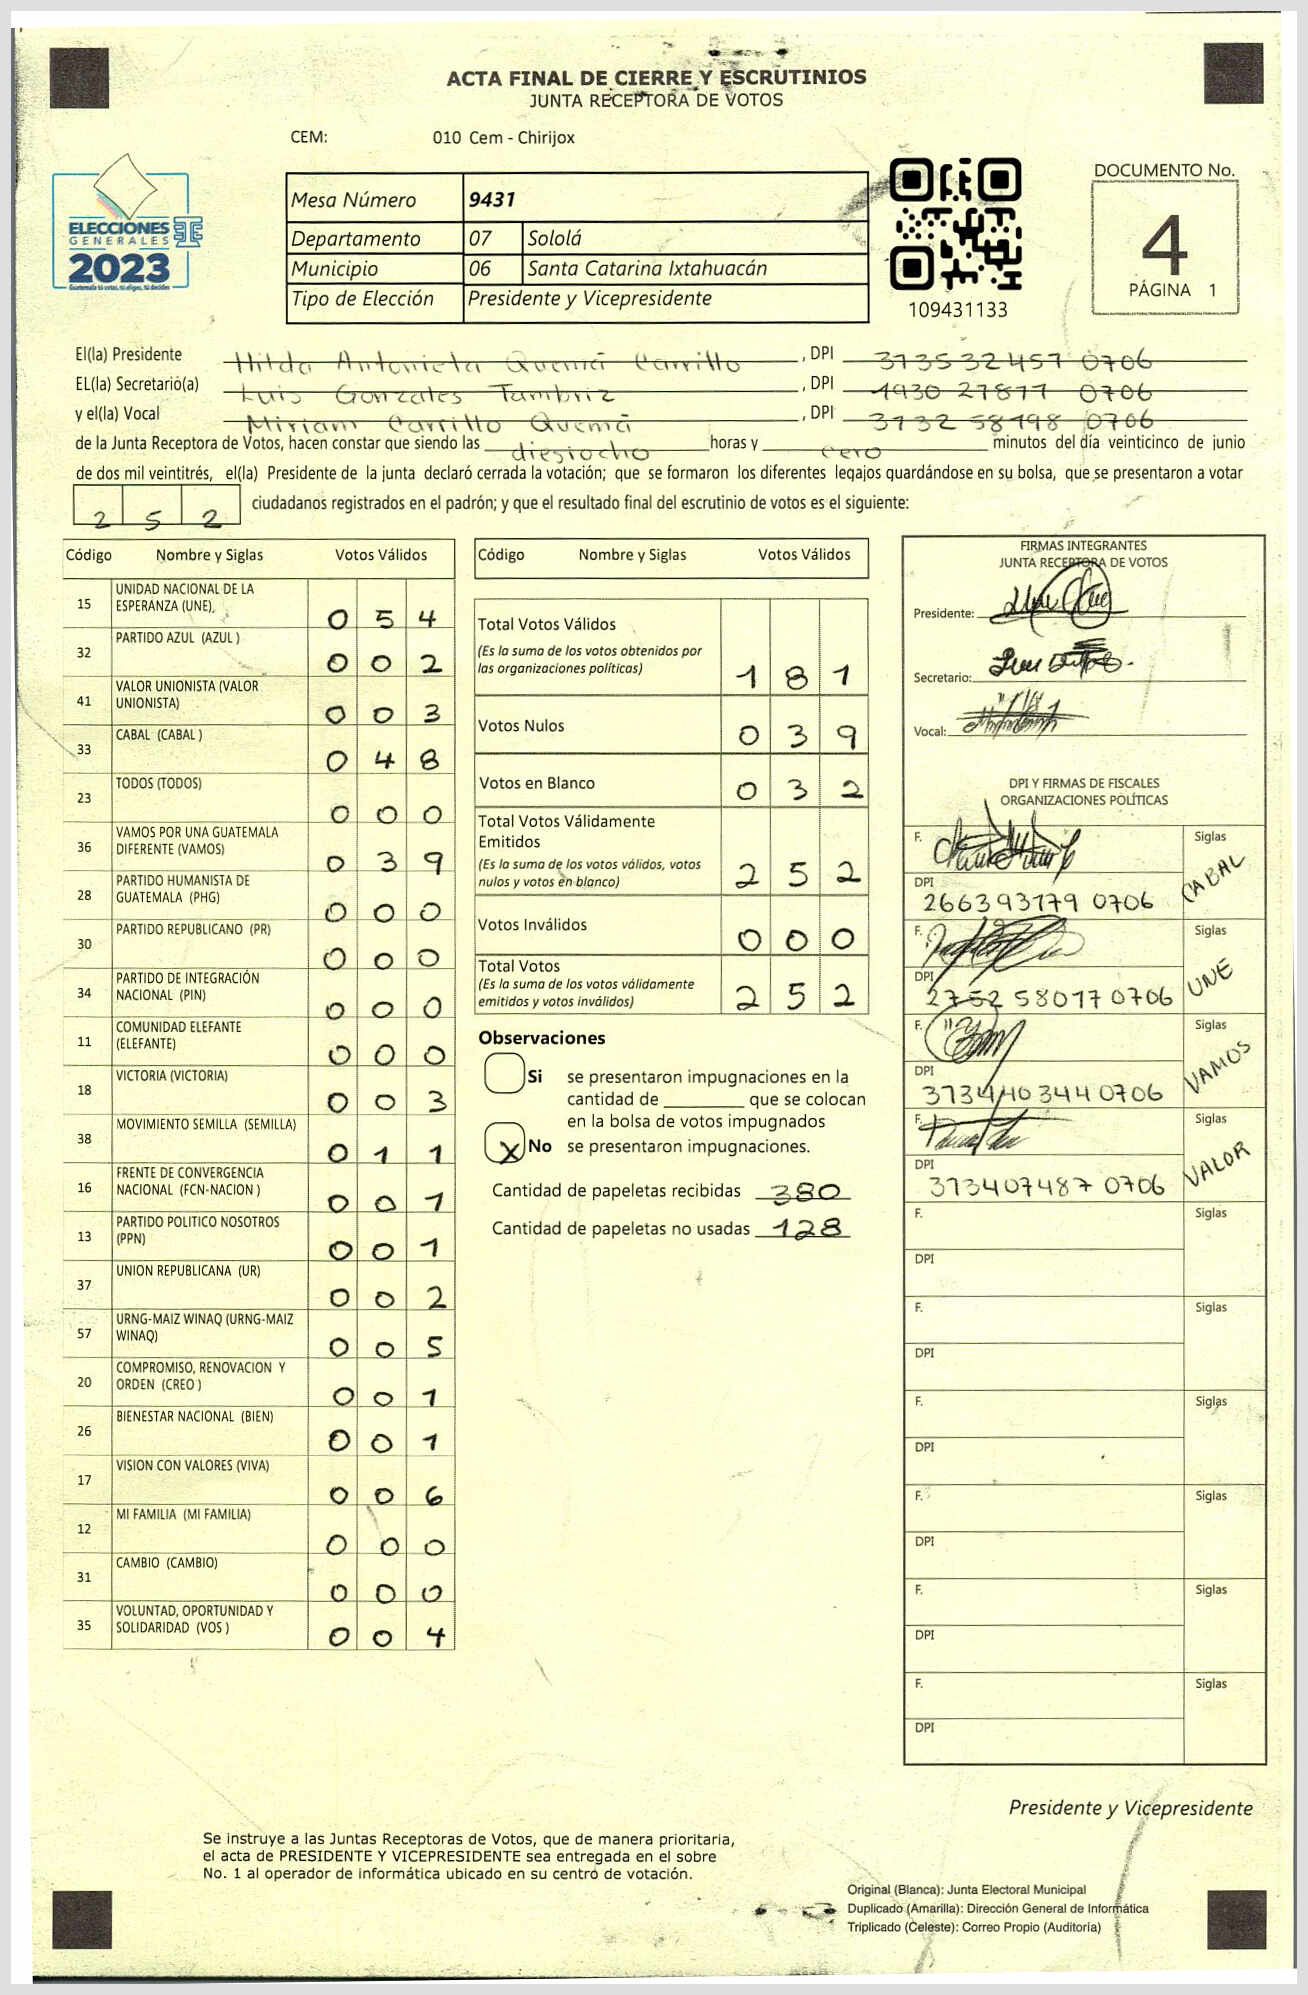 ACTA FINAL DE CIERRE Y ESCRUTINIOS
JUNTA RECEPTORA DE VOTOS
CEM: 010 Cem - Chirijox
ELECCIONES
GENERALES
2023
Mesa Número 9431
Departamento 07 Sololá
Municipio 06 Santa Catarina Ixtahuacán
Tipo de Elección Presidente y Vicepresidente
109431133
DOCUMENTO No.
4
PÁGINA 1
El(la) Presidente Hilda Antonieta Quemá Carrillo , DPI 3135 32457 0706
EL(la) Secretario(a) Luis Gonzales Tambriz , DPI 1930 27877 0706
y el(la) Vocal Miriam Carrillo Quemá , DPI 3132 58198 0706
de la Junta Receptora de Votos, hacen constar que siendo las diesiocho horas y cero minutos del día veinticinco de junio
de dos mil veintitrés, el(la) Presidente de la junta declaró cerrada la votación; que se formaron los diferentes legajos guardándose en su bolsa, que se presentaron a votar
252 ciudadanos registrados en el padrón; y que el resultado final del escrutinio de votos es el siguiente:
Código Nombre y Siglas Votos Válidos
15 UNIDAD NACIONAL DE LA ESPERANZA (UNE), 054
32 PARTIDO AZUL (AZUL ) 002
41 VALOR UNIONISTA (VALOR UNIONISTA) 003
33 CABAL (CABAL ) 048
23 TODOS (TODOS) 000
36 VAMOS POR UNA GUATEMALA DIFERENTE (VAMOS) 039
28 PARTIDO HUMANISTA DE GUATEMALA (PHG) 000
30 PARTIDO REPUBLICANO (PR) 000
34 PARTIDO DE INTEGRACIÓN NACIONAL (PIN) 000
11 COMUNIDAD ELEFANTE (ELEFANTE) 000
18 VICTORIA (VICTORIA) 003
38 MOVIMIENTO SEMILLA (SEMILLA) 011
16 FRENTE DE CONVERGENCIA NACIONAL (FCN-NACION ) 001
13 PARTIDO POLITICO NOSOTROS (PPN) 001
37 UNION REPUBLICANA (UR) 002
57 URNG-MAIZ WINAQ (URNG-MAIZ WINAQ) 005
20 COMPROMISO, RENOVACION Y ORDEN (CREO ) 001
26 BIENESTAR NACIONAL (BIEN) 001
17 VISION CON VALORES (VIVA) 006
12 MI FAMILIA (MI FAMILIA) 000
31 CAMBIO (CAMBIO) 000
35 VOLUNTAD, OPORTUNIDAD Y SOLIDARIDAD (VOS ) 004
Código Nombre y Siglas Votos Válidos
Total Votos Válidos
(Es la suma de los votos obtenidos por
las organizaciones políticas) 181
Votos Nulos 039
Votos en Blanco 032
Total Votos Válidamente
Emitidos
(Es la suma de los votos válidos, votos
nulos y votos en blanco) 252
Votos Inválidos 000
Total Votos
(Es la suma de los votos válidamente
emitidos y votos inválidos) 252
Observaciones
Si se presentaron impugnaciones en la
cantidad de ________ que se colocan
en la bolsa de votos impugnados
X No se presentaron impugnaciones.
Cantidad de papeletas recibidas 380
Cantidad de papeletas no usadas 128
FIRMAS INTEGRANTES
JUNTA RECEPTORA DE VOTOS
Presidente:
Secretario:
Vocal:
DPI Y FIRMAS DE FISCALES
ORGANIZACIONES POLÍTICAS
F. Siglas CABAL
DPI 266393179 0706
F. Siglas UNE
DPI 2752 58017 0706
F. Siglas VAMOS
DPI 3134403440706
F. Siglas VALOR
DPI 313407487 0706
F. Siglas
DPI
F. Siglas
DPI
F. Siglas
DPI
F. Siglas
DPI
F. Siglas
DPI
F. Siglas
DPI
Presidente y Vicepresidente
Se instruye a las Juntas Receptoras de Votos, que de manera prioritaria,
el acta de PRESIDENTE Y VICEPRESIDENTE sea entregada en el sobre
No. 1 al operador de informática ubicado en su centro de votación.
Original (Blanca): Junta Electoral Municipal
Duplicado (Amarilla): Dirección General de Informática
Triplicado (Celeste): Correo Propio (Auditoría)